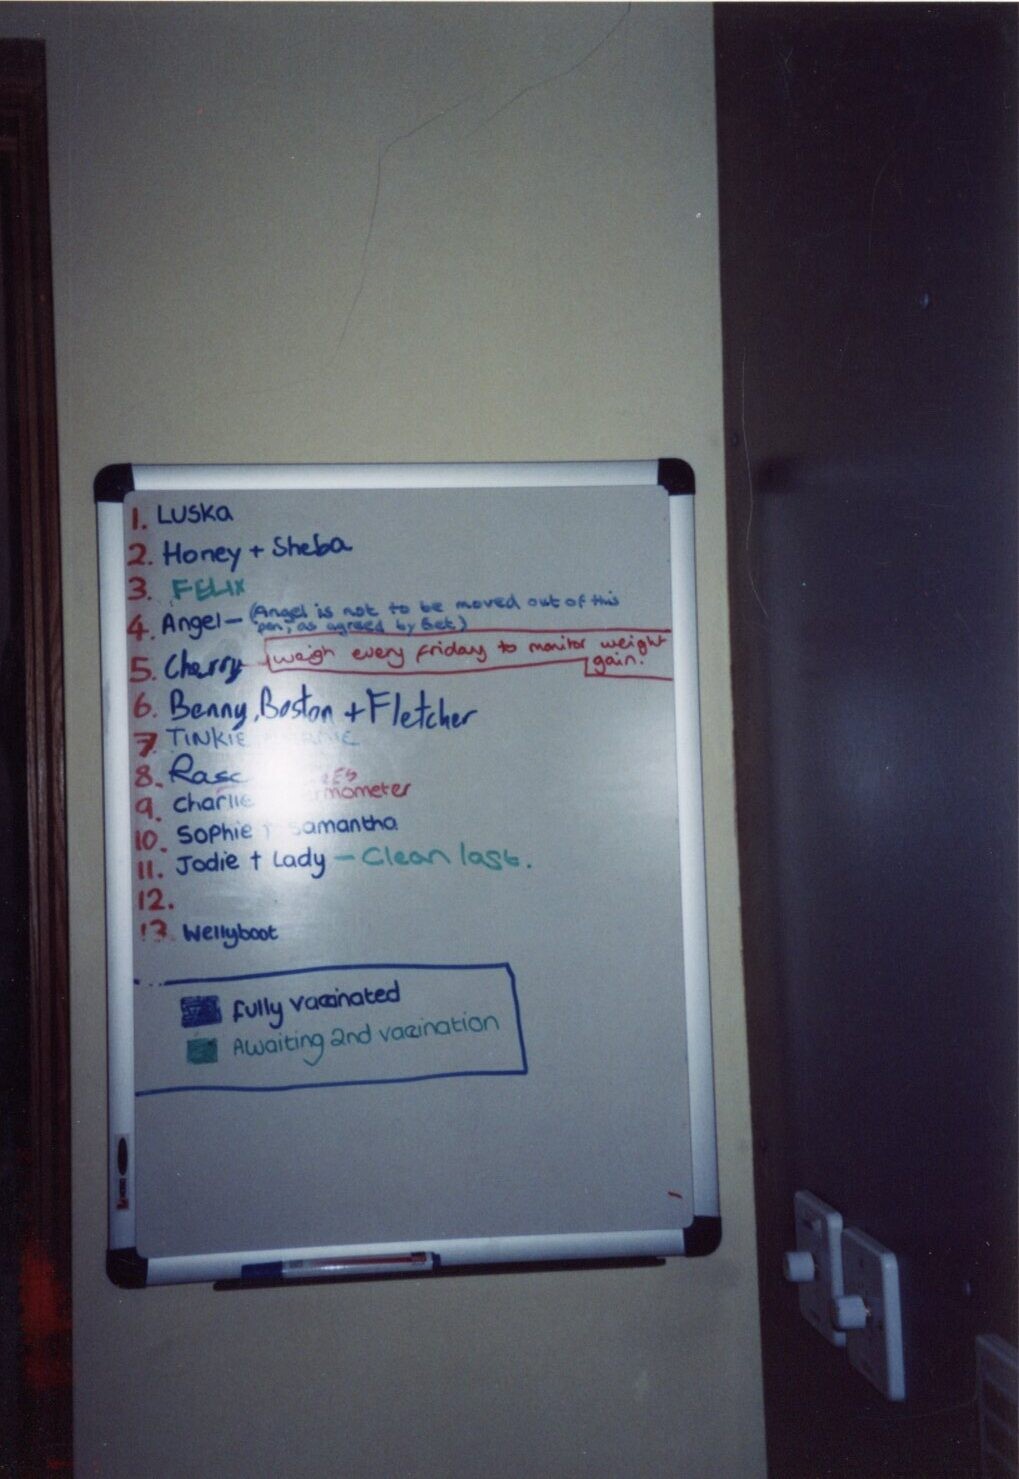 1. LUSKA
2. Honey + Sheba
3. FELIX
4. Angel - (Angel is not to be moved out of this
pen, as agreed by Bet.)
5. Cherry - weigh every friday to monitor weight
gain.
6. Benny, Boston + Fletcher
7. TINKIE
8.
9. Charlie
10. Sophie + Samantha
11. Jodie + Lady - Clean last.
12.
13. Wellyboot
fully vaccinated
Awaiting 2nd vaccination